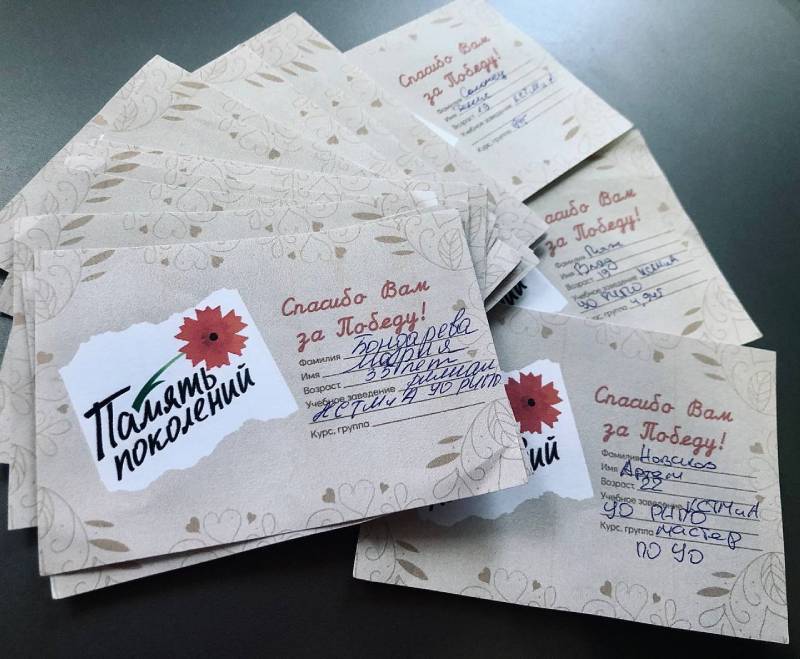 Память
поколений
Спасибо Вам
за Победу!
Фамилия Бондарева
Имя Мария
Возраст 33 лет
Учебное заведение филиал
КСТМиА УО РИПО
Курс, группа
Спасибо Вам
за Победу!
Фамилия
Имя
Возраст 19
Учебное заведение КСТМиА
Курс, группа
Спасибо Вам
за Победу!
Фамилия
Имя Влад
Возраст 19
Учебное заведение КСТМиА
УО РИПО
Курс, группа
Спасибо Вам
за Победу!
Фамилия Новиков
Имя Артем
Возраст 22
Учебное заведение КСТМиА
УО РИПО
Курс, группа мастер
по УО